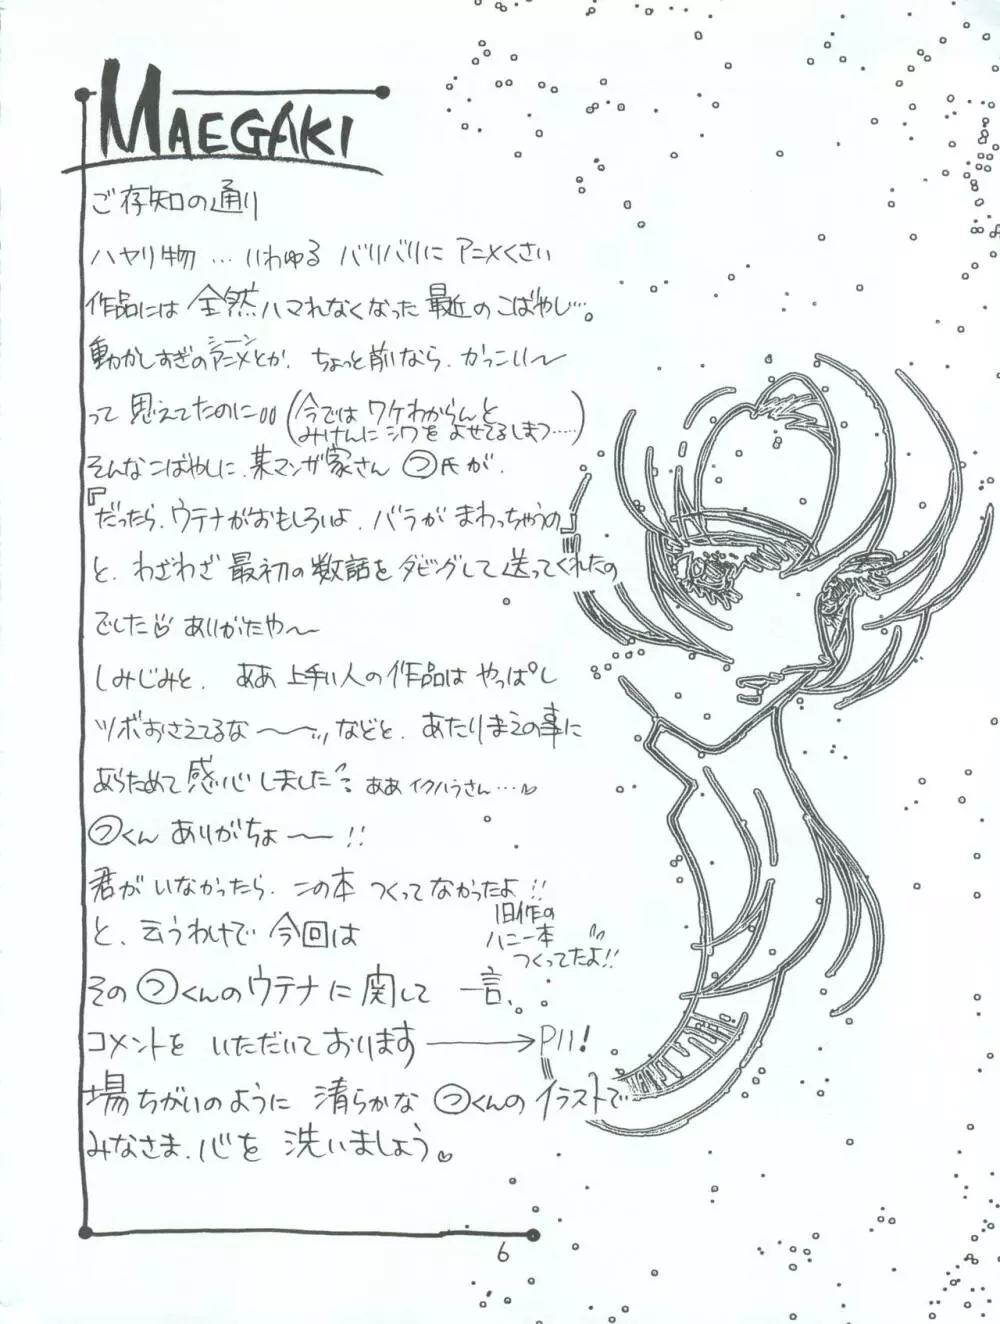 MAEGAKI
ご存知の通り
ハヤリ物…いわゆる バリバリに アニメくさい
作品には 全然ハマれなくなった 最近の こばやし…。
動かしすぎのアニメシーンとか、ちょっと前なら、かっこいい〜
って 思えてたのに(今では ワケわからんと
みけんに シワを よせてるしまつ……)
そんなこばやしに、某マンガ家さん つ氏が、
『だったら、ウテナがおもしろいよ、バラが まわっちゃうの』
と、わざわざ 最初の数話を ダビングして 送ってくれたの
でした ありがたや〜
しみじみと、 ああ 上手い人の作品は やっぱし
ツボおさえてるな〜〜、などと、あたりまえの事に
あらためて 感心しました ああ イクハラさん…♡
つくん ありがちょ〜!!
君が いなかったら、この本 つくってなかったよ!!
旧作の
ハニー本
つくってたよ!!
と、云うわけで 今回は
その つくんのウテナに 関して 一言、
コメントを いただいております→P11!
場ちがいのように 清らかな つくんの イラストで
みなさま、心を 洗いましょう。♡
6